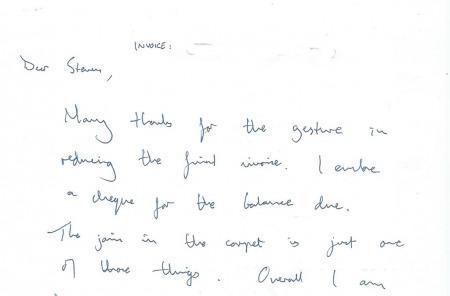 INVOICE:
Dear Steven,
Many thanks for the gesture in
reducing the final invoice. I enclose
a cheque for the balance due.
The join in the carpet is just one
of those things. Overall I am